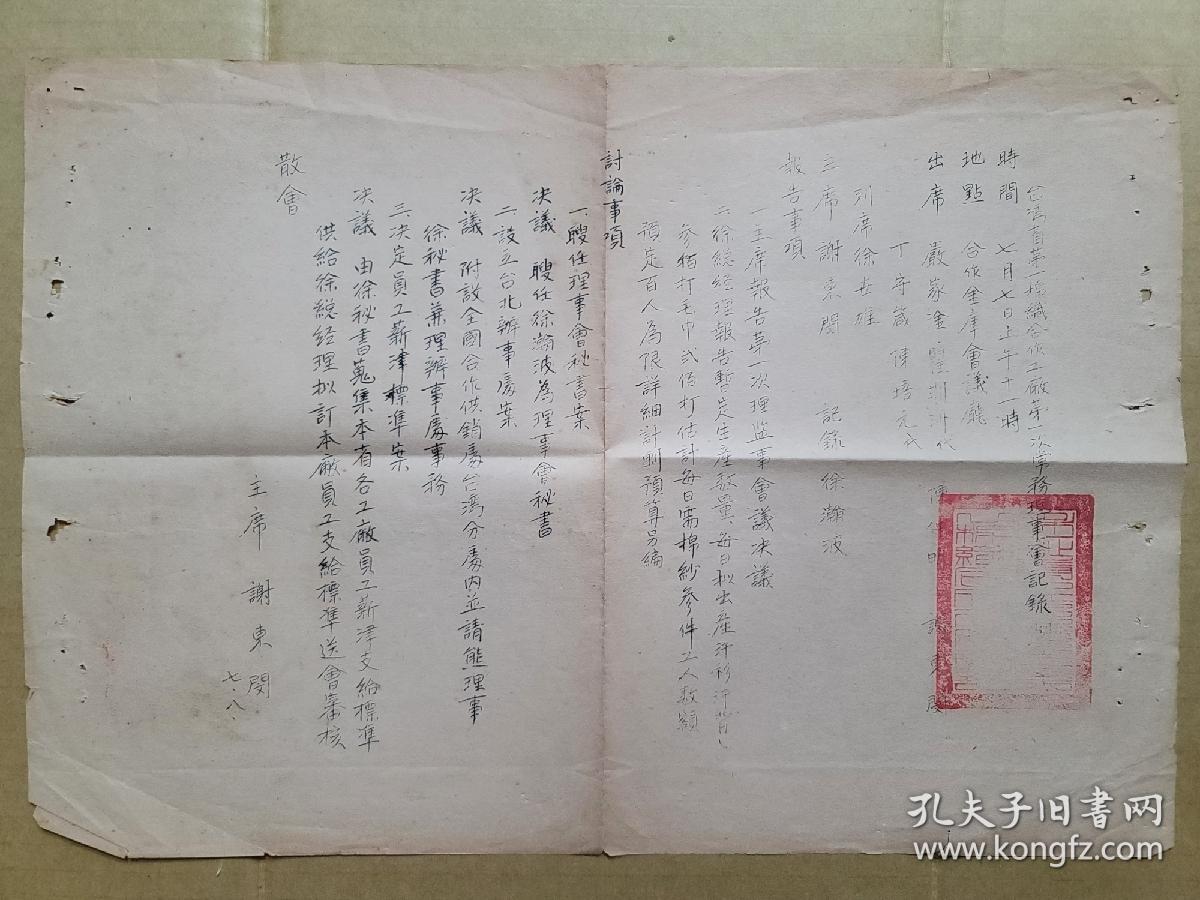 台湾省第一棉織合作工廠第一次常務理事會記錄
時間 七月七日上午十一時
地點 合作金庫會議廳
出席 嚴家淦
丁守箴 陳培元代
列席 徐世雄
主席 謝東閔 記錄 徐瀚波
報告事項
一主席報告第一次理監事會議決議
二徐總經理報告暫定生產數量每日拟出產汗衫汗背心
参佰打毛巾弍佰打估計每日需棉紗参件工人数額
預定百人為限詳細計劃預算另編
討論事項
一聘任理事會秘書案
决議 聘任徐瀚波為理事會秘書
二設立台北辦事處案
决議 附設全國合作供銷處台湾分處内並請熊理事
徐秘書兼理辦事處事務
三决定員工薪津標準案
决議 由徐秘書蒐集本省各工廠員工薪津支給標準
供給徐総經理拟訂本廠員工支給標準送會審核
散會
主席 謝東閔
七.八.
孔夫子旧书网
www.kongfz.com